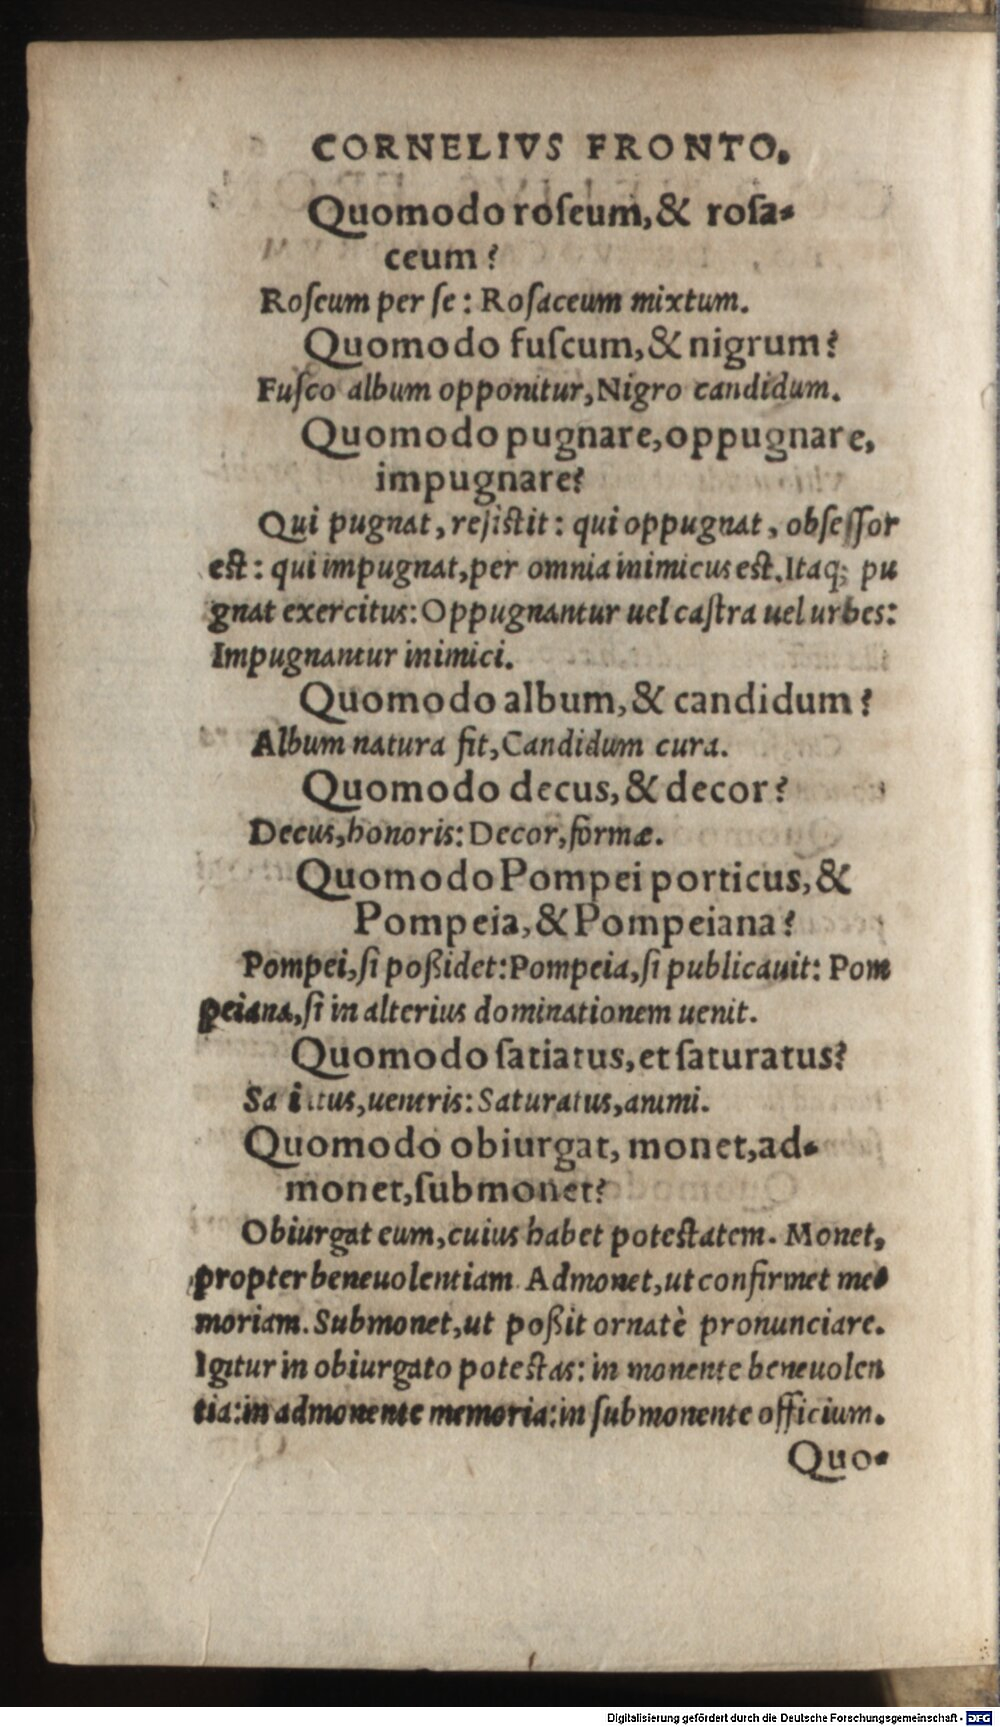 CORNELIVS FRONTO.
Quomodo roſeum, & roſa-
ceum?
Roſeum per ſe: Roſaceum mixtum.
Quomodo fuſcum, & nigrum?
Fuſco album opponitur, Nigro candidum.
Quomodo pugnare, oppugnare,
impugnare?
Qui pugnat, reſiſtit: qui oppugnat, obſeſſor
eſt: qui impugnat, per omnia inimicus eſt. Itaq; pu
gnat exercitus: Oppugnantur uel caſtra uel urbes:
Impugnantur inimici.
Quomodo album, & candidum?
Album natura fit, Candidum cura.
Quomodo decus, & decor?
Decus, honoris: Decor, formæ.
Quomodo Pompei porticus, &
Pompeia, & Pompeiana?
Pompei, ſi poßidet: Pompeia, ſi publicauit: Pom
peiana, ſi in alterius dominationem uenit.
Quomodo ſatiatus, et ſaturatus?
Satiatus, uentris: Saturatus, animi.
Quomodo obiurgat, monet, ad-
monet, ſubmonet?
Obiurgat eum, cuius habet poteſtatem. Monet,
propter beneuolentiam. Admonet, ut confirmet me-
moriam. Submonet, ut poßit ornatè pronunciare.
Igitur in obiurgato poteſtas: in monente beneuolen
tia: in admonente memoria: in ſubmonente officium.
Quo-
Digitalisierung gefördert durch die Deutsche Forschungsgemeinschaft - DFG